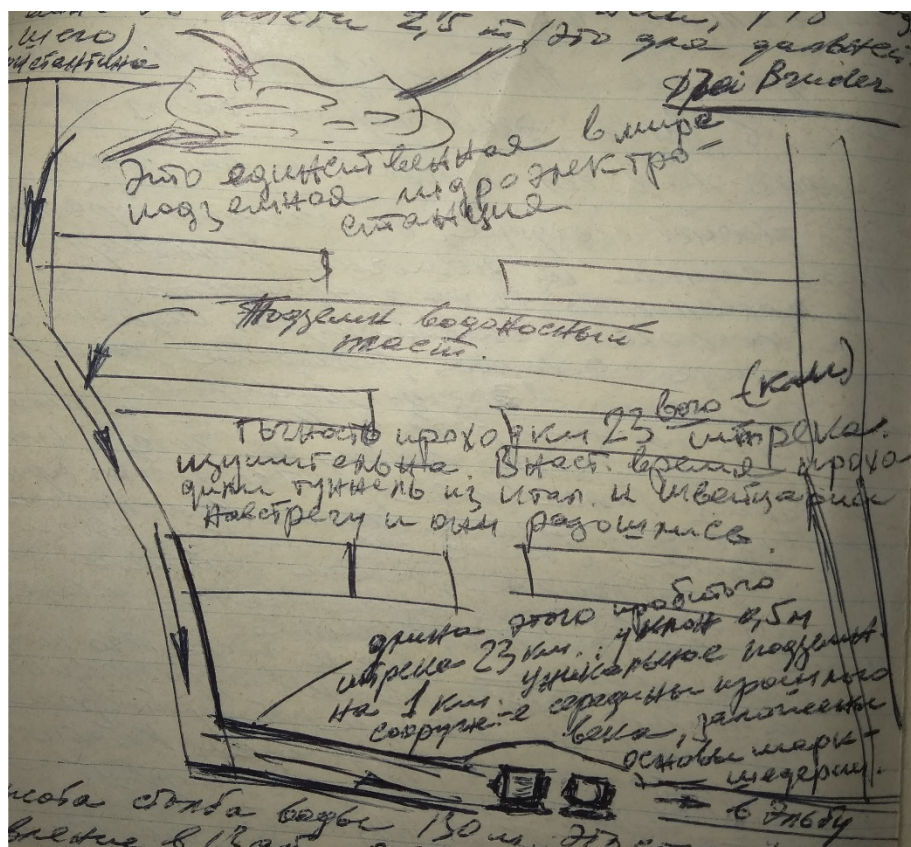 2,5 м (это для дальней-
шего)
Drei Brüder
Это единственная в мире
подземная гидроэлектро-
станция
Подземн. водоносный
пласт.
Точность проходки 23 вого (км) штрека.
изумительна. В наст. время прохо
дили туннель из Итал. и Швейцарии
навстречу и они разошлись.
длина этого пробитого
штрека 23 км. уклон 0,5 м
на 1 км. уникальное подземн.
сооруж-е середины прошлого
века, заложены
основы марк-
шедерии.
в Эльбу
столба воды 130 м. Это
в 13